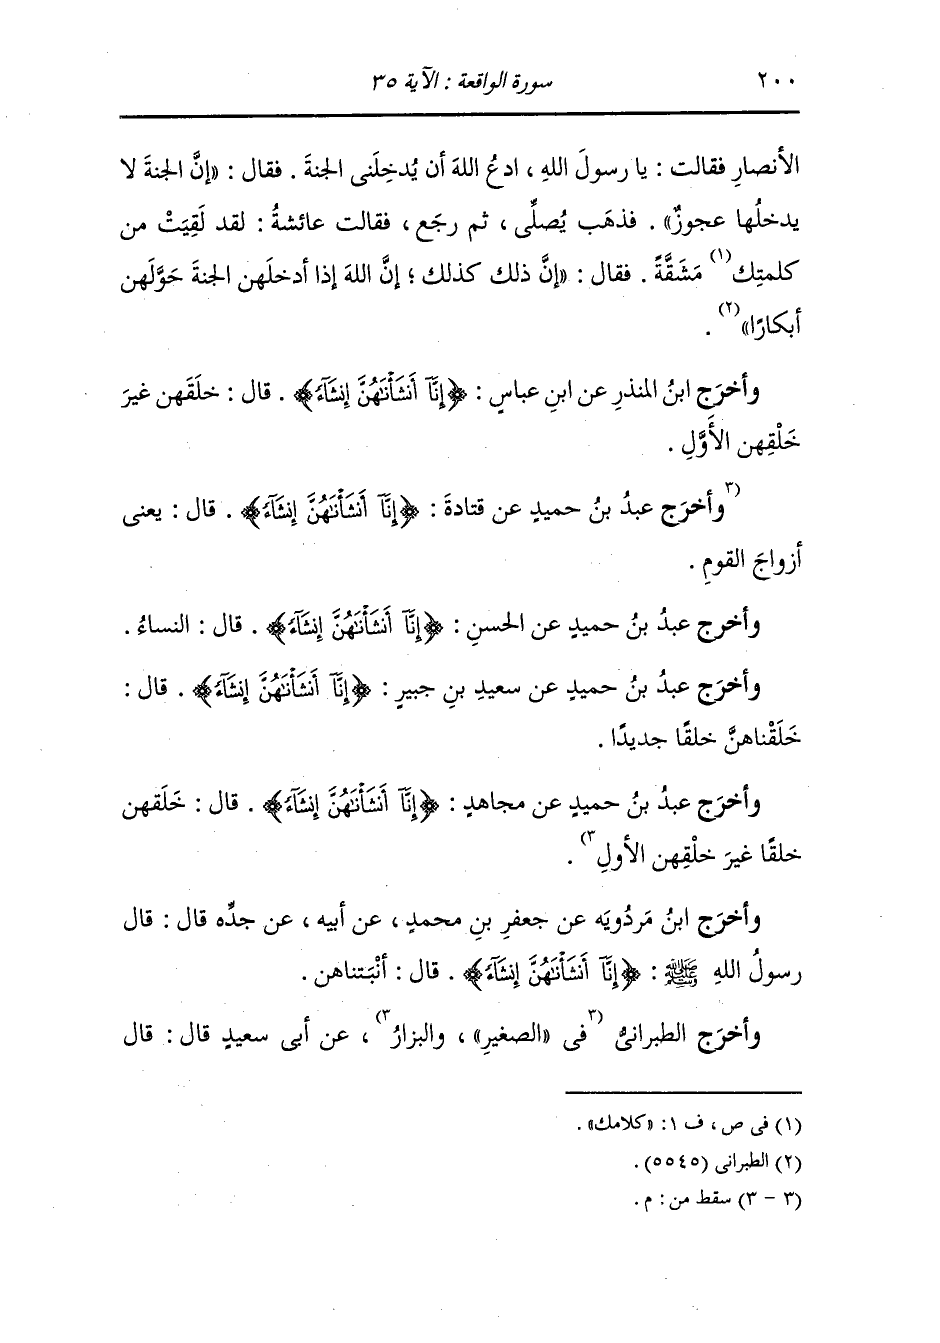 ٢٠٠ سورة الواقعة : الآية ٣٥
الأنصارِ فقالت : يا رسولَ اللهِ ، ادعُ اللهَ أن يُدخِلَنى الجنةَ . فقال : «إنَّ الجنةَ لا
يدخلُها عجوزٌ» . فذهَب يُصلِّى ، ثم رجَع ، فقالت عائشةُ : لقد لَقِيَتْ من
كلمتِك(١) مَشَقَّةً . فقال : «إنَّ ذلك كذلك ؛ إنَّ اللهَ إذا أدخلَهن الجنةَ حَوَّلَهن
أبكارًا»(٢) .
وأخرَج ابنُ المنذرِ عن ابنِ عباسٍ : ﴿إِنَّآ أَنشَأْنَٰهُنَّ إِنشَآءً﴾ . قال : خلَقَهن غيرَ
خَلْقِهن الأَوَّلِ .
(٣وأخرَج عبدُ بنُ حميدٍ عن قتادةَ : ﴿إِنَّآ أَنشَأْنَٰهُنَّ إِنشَآءً﴾ . قال : يعنى
أزواجَ القومِ .
وأخرج عبدُ بنُ حميدٍ عن الحسنِ : ﴿إِنَّآ أَنشَأْنَٰهُنَّ إِنشَآءً﴾ . قال : النساءُ .
وأخرَج عبدُ بنُ حميدٍ عن سعيدِ بنِ جبيرٍ : ﴿إِنَّآ أَنشَأْنَٰهُنَّ إِنشَآءً﴾ . قال :
خَلَقْناهنَّ خلقًا جديدًا .
وأخرَج عبدُ بنُ حميدٍ عن مجاهدٍ : ﴿إِنَّآ أَنشَأْنَٰهُنَّ إِنشَآءً﴾ . قال : خَلَقهن
خلقًا غيرَ خلْقِهن الأولِ٣) .
وأخرَج ابنُ مَردُويَه عن جعفرِ بنِ محمدٍ ، عن أبيه ، عن جدِّه قال : قال
رسولُ اللهِ ﷺ : ﴿إِنَّآ أَنشَأْنَٰهُنَّ إِنشَآءً﴾ . قال : أنْبَتناهن .
وأخرَج الطبرانىُّ (٣فى «الصغيرِ» ، والبزارُ٣) ، عن أبى سعيدٍ قال : قال
(١) فى ص ، ف ١ : «كلامك» .
(٢) الطبرانى (٥٥٤٥) .
(٣ - ٣) سقط من : م .